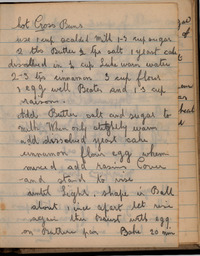 Hot Cross Buns
use 1 cup scalded milk 1/2 cup sugar
2 tbs Butter 1/2 ts salt 1 yeast cake
dissolved in 1/4 cup Luke warm water
cinnamon 3 cup flour
1 egg well Beaten and cup
raisons.
Add Butter salt and sugar to
milk When only slightly warm
add dissolved yeast cake
cinnamon flour egg when
mixed add raisins cover
and stand to rise
until light, shape in Ball
about 1 apart let rise
again then Brust with egg
on Buttered pan Bake 20 min